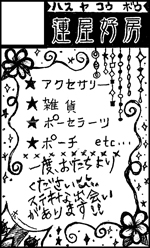 ハスヤコウボウ
蓮屋好房
★アクセサリー
★雑貨
★ポセラーツ
★ポーチ etc...
一度、おたちより
ください!!
ステキな出会い
があります!!